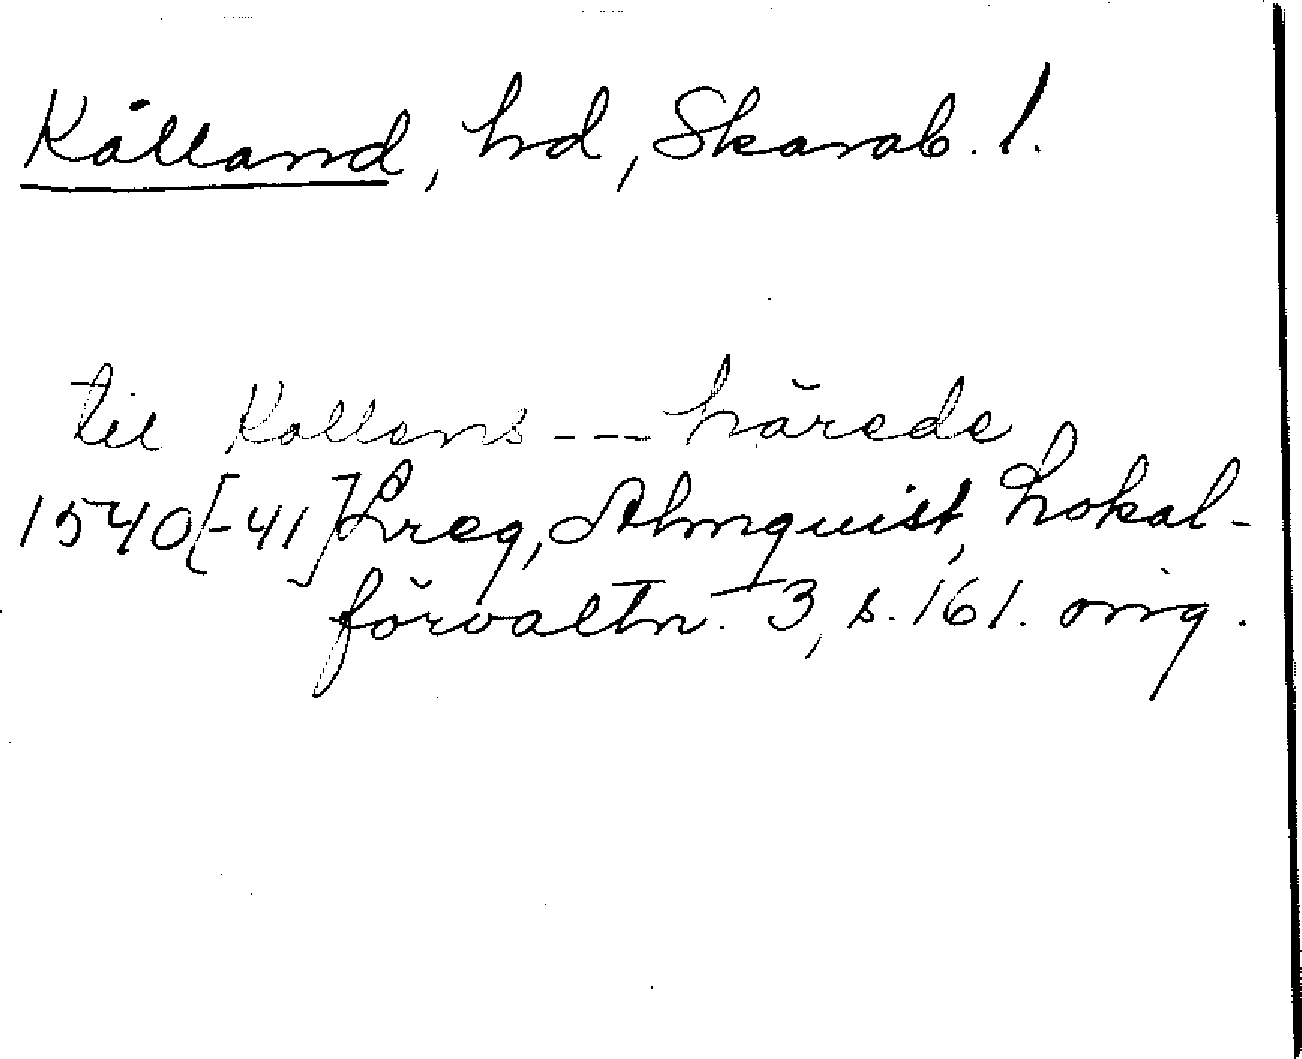 Kålland, hd, Skarab. l.
til Kollens --- härede
1540[-41] Lreg, Almquist, Lokal-
förvaltn. 3, s. 161. orig.